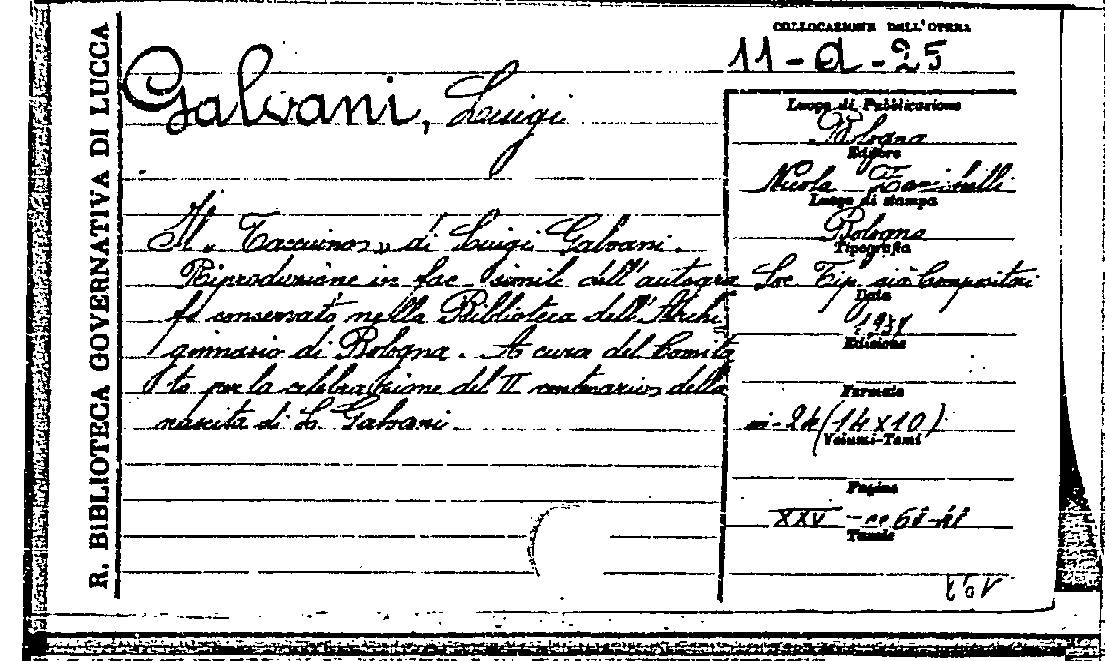 R. BIBLIOTECA GOVERNATIVA DI LUCCA
COLLOCAZIONE DELL'OPERA
11-a-25
Galvani, Luigi
Il "Taccuino" di Luigi Galvani.
Riprodurzione in fac-simile dell'autogra
fo conservato nella Biblioteca dell'Archi
ginnasio di Bologna. A cura del Comita
to per la celebrazione del II centenario della
nascita di L. Galvani.
Luogo di Pubblicazione
Bologna
Editore
Nicola Zanichelli
Luogo di stampa
Bologna
Tipografia
Soc Tip. già Compositori
Data
Edizione
Formato
in-24 (14x10)
Volumi-Tomi
Pagine
XXV
Tavole